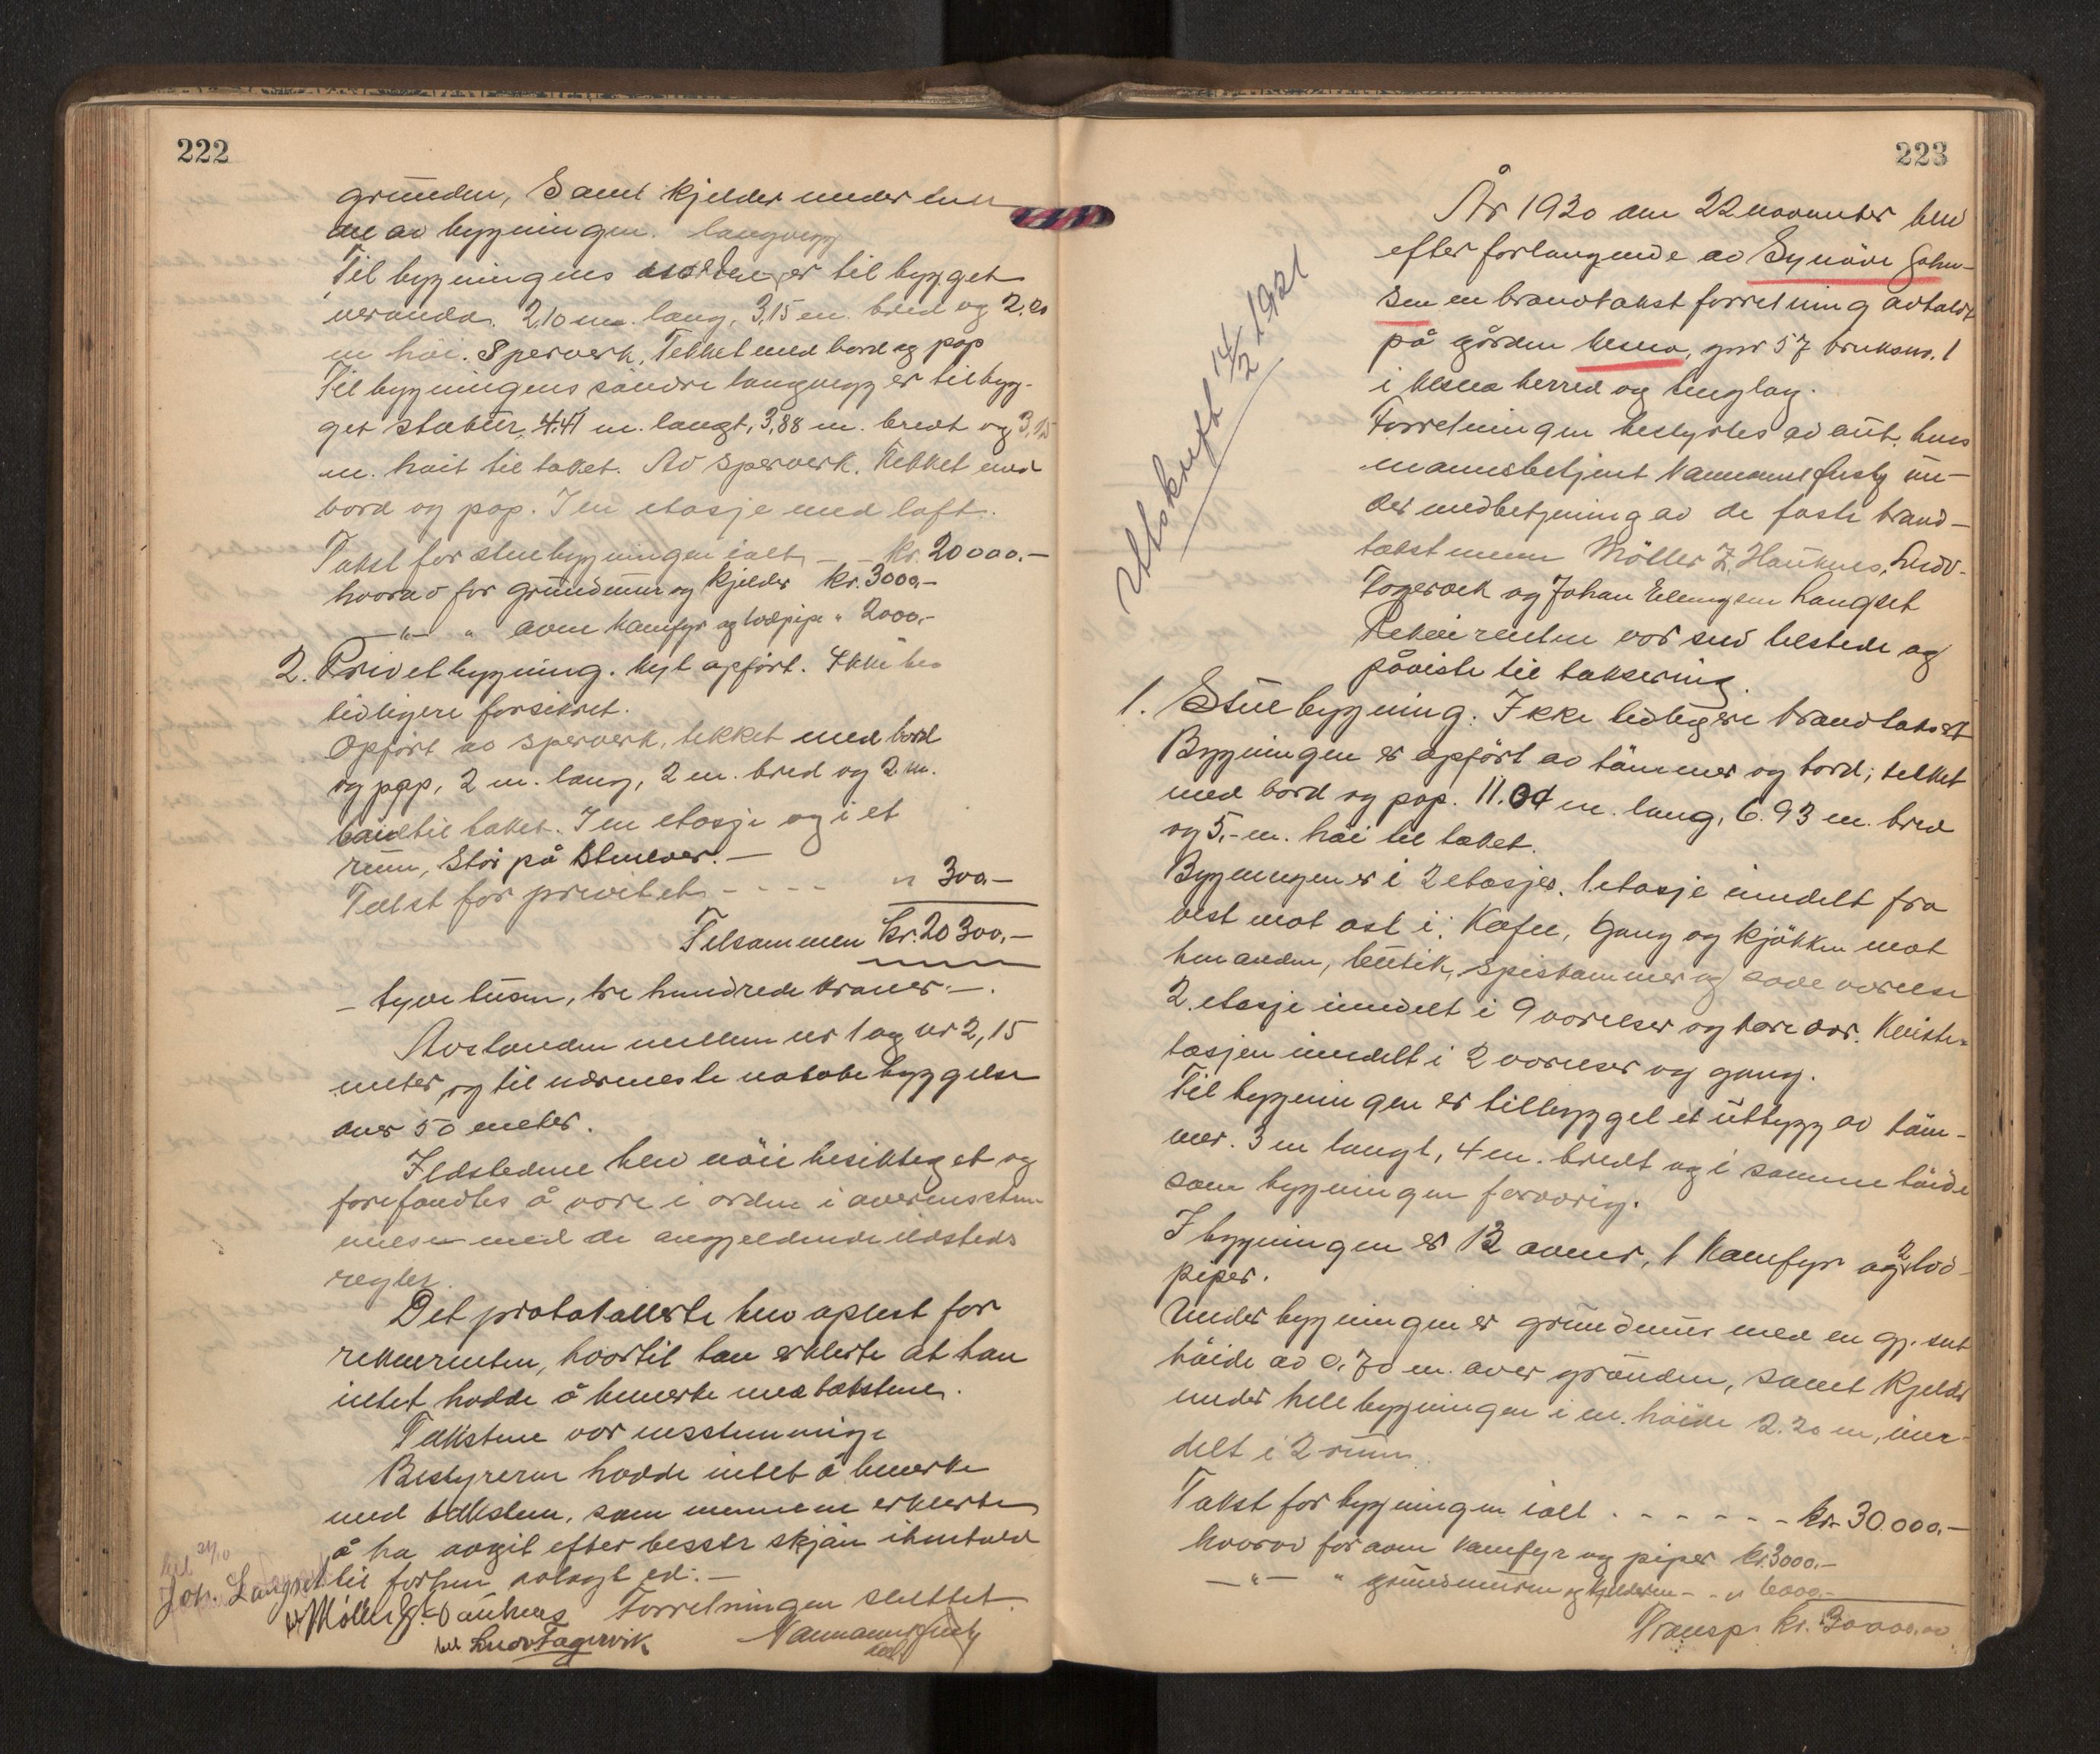 222
grunden, Samt kjelder under
av bygningen. langvegg
Til bygningens er til bygget
veranda. 2,10 m. lang, 3,15 m. bred og 2,20
m höi. Sperverk. Tekket med bord og pap
Til bygningens söndre langvegg er tilbyg-
get stabur, 4.41 m. langt, 3,88 m. bredt og 3,15
m. höit til taket. Av sperverk. Tekket med
bord og pap. I en etasje med loft.
Takst for stuebygningen ialt - - kr. 20000.-
hvorav for grundmur og kjelder kr. 3000,-
-"- " ovn komfyr og lodpipe " 2000,-
2. Privetbygning. Nyt opfört. Ikke
tidligere forsikret.
Opfört av sperverk, tekket med bord
og pap, 2 m. lang, 2 m. bred og 2 m.
til taket. I en etasje og i et
rum, Står på stolver. -
Takst for privetet - - - - " 300.-
Tilsammen kr. 20300,-
- tyve tusen, tre hundrede kroner -.
Avstanden mellem nr 1 og nr 2, 15
meter, og til nærmeste nabobebyggelse
over 50 meter.
Ildstedene blev nöie besiktiget og
forefandtes å være i orden i overensstem
melse med de angjeldende ildsteds
regler.
Det protokollerte blev oplest for
rekvirenten, hvortil han erklerte at han
intet hadde å bemerke med takstene.
Takstene var enstemmige
Bestyreren hadde intet å bemerke
med taksten, som mennene erklerte
å ha avgit efter beste skjön ihenhold
til forhen avlagt ed. -
Forretningen sluttet.
Joh. Langset
Möller Z. Hauknes
Ludv Fagervik
223
Utskrift 14/2 1921
År 1920 den 22 november blev
efter forlangende av Synöve John-
sen en brandtakst forretning avholdt
på gården Nesna, gnr 57 bruksnr. 1
i Nesna herred og tinglag.
Forretningen bestyrtes av aut. lens
mannsbetjent un-
der medbetjening av de faste brand-
takstmenn Möller Z. Hauknes, Ludv.
Fagervik og Johan Elling sen Langset
Rekvirenten var selv tilstede og
påviste til taksering
1. Stuebygning. Ikke tidligere brandtaksert
Bygningen er opfört av tömmer og bord; tekket
med bord og pap. 11.04 m. lang, 6.93 m. bred
og 5,- m. höi til taket.
Bygningen er i 2 etasjer. 1 etasje inndelt fra
vest mot ost i: Kafee, Gang og kjökken mot
hinanden, butik, spiskammer og sove værelse
2. etasje inndelt i 9 værelser og korridor. Kviste-
tasjen inndelt i 2 værelser og gang.
Til bygningen er tilbygget et utbygg av töm-
mer. 3 m langt, 4 m. bredt og i samme höide
som bygningen forövrig.
I bygningen er 12 ovner, 1 komfyr og 2 lod-
piper.
Under bygningen er grundmur med en gj. snt
höide av 0,70 m. over grunden, samt kjelder
under hele bygningen i en höide 2.20 m, inn-
delt i 2 rum.
Takst for bygningen ialt . - - - - - - kr. 30.000.-
hvorav for ovn komfyr og piper kr. 3000.-
-"- " grundmuren og kjelderen - - " 6000.-
Transp. kr. 30000.00